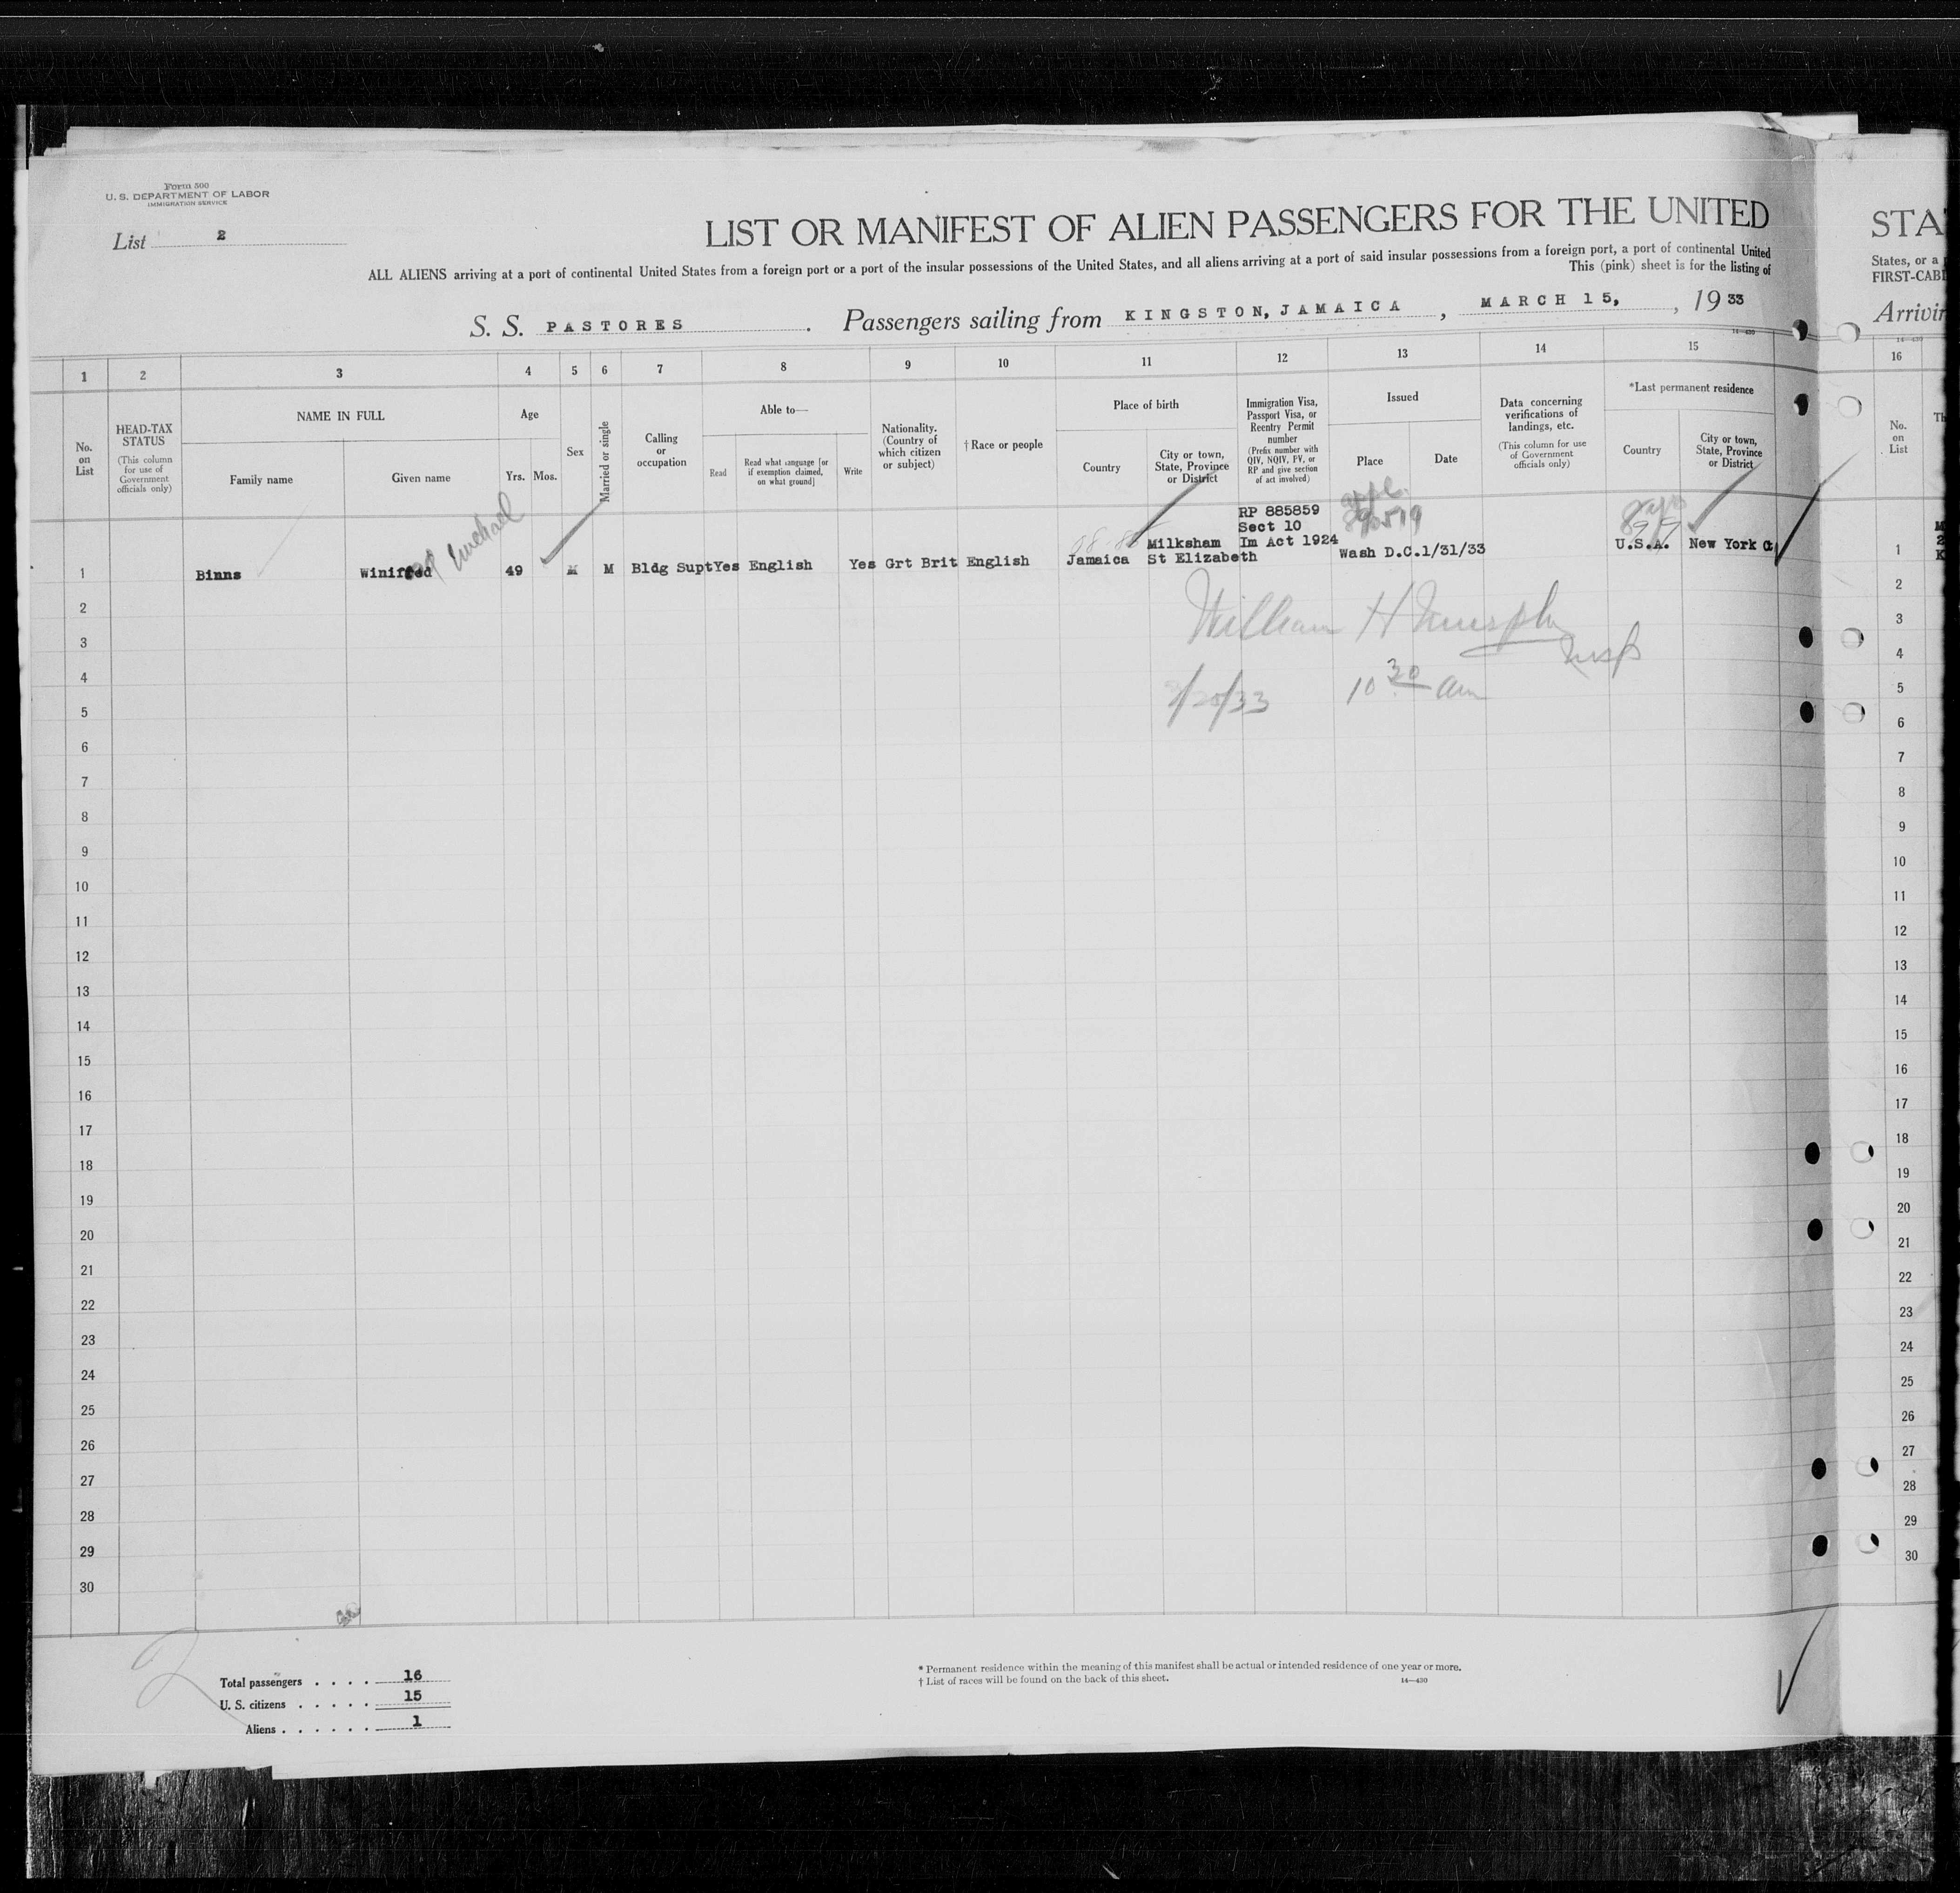 Form 500
U. S. DEPARTMENT OF LABOR
IMMIGRATION SERVICE
List 2
LIST OR MANIFEST OF ALIEN PASSENGERS FOR THE UNITED
STA
ALL ALIENS arriving at a port of continental United States from a foreign port or a port of the insular possessions of the United States, and all aliens arriving at a port of said insular possessions from a foreign port, a port of continental United
States, or a
This (pink) sheet is for the listing of
FIRST-CABI
S. S. PASTORES . Passengers sailing from KINGSTON, JAMAICA , MARCH 15, , 19 33
Arrivin
14—430
1 2 3 4 5 6 7 8 9 10 11 12 13 14 15 16
No. on List
HEAD-TAX STATUS
(This column for use of Government officials only)
NAME IN FULL
Family name
Given name
Age
Yrs. Mos.
Sex
Married or single
Calling or occupation
Able to—
Read
Read what language [or if exemption claimed, on what ground]
Write
Nationality. (Country of which citizen or subject)
† Race or people
Place of birth
Country
City or town, State, Province or District
Immigration Visa, Passport Visa, or Reentry Permit number
(Prefix number with QIV, NQIV, PV, or RP and give section of act involved)
Issued
Place
Date
Data concerning verifications of landings, etc.
(This column for use of Government officials only)
*Last permanent residence
Country
City or town, State, Province or District
No. on List
Th
RP 885859
Sect 10
Milksham Im Act 1924
U.S.A. New York
1 Binns Winifred 49 M M Bldg Supt Yes English Yes Grt Brit English Jamaica St Elizabeth Wash D.C. 1/31/33
1
William H Murphy
Insp
/20/33 10 30 am
2
3
4
5
6
7
8
9
10
11
12
13
14
15
16
17
18
19
20
21
22
23
24
25
26
27
28
29
30
2
3
4
5
6
7
8
9
10
11
12
13
14
15
16
17
18
19
20
21
22
23
24
25
26
27
28
29
30
2
Total passengers . . . . 16
U. S. citizens . . . . . 15
Aliens . . . . . . 1
* Permanent residence within the meaning of this manifest shall be actual or intended residence of one year or more.
† List of races will be found on the back of this sheet.
14—430